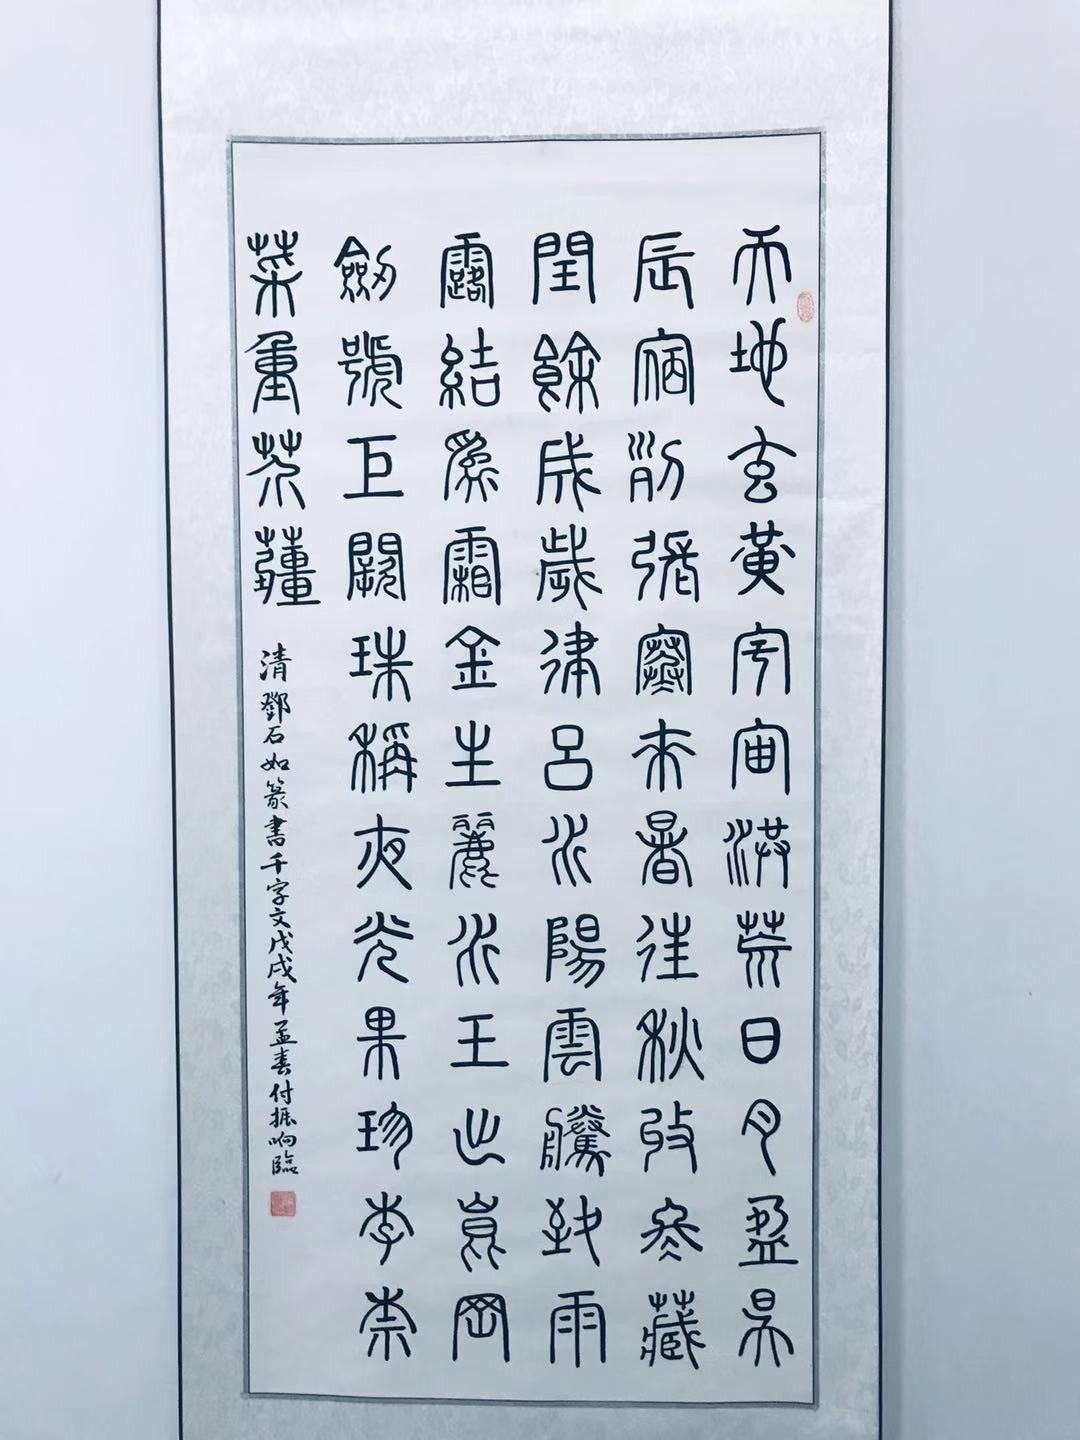 天地玄黃宇宙洪荒日月盈昃
辰宿列張寒來暑往秋收冬藏
閏餘成歲律呂調陽雲騰致雨
露結為霜金生麗水玉出崑岡
劍號巨闕珠稱夜光果珍李柰
菜重芥薑
清鄧石如篆書千字文戊戌年孟春付振响臨